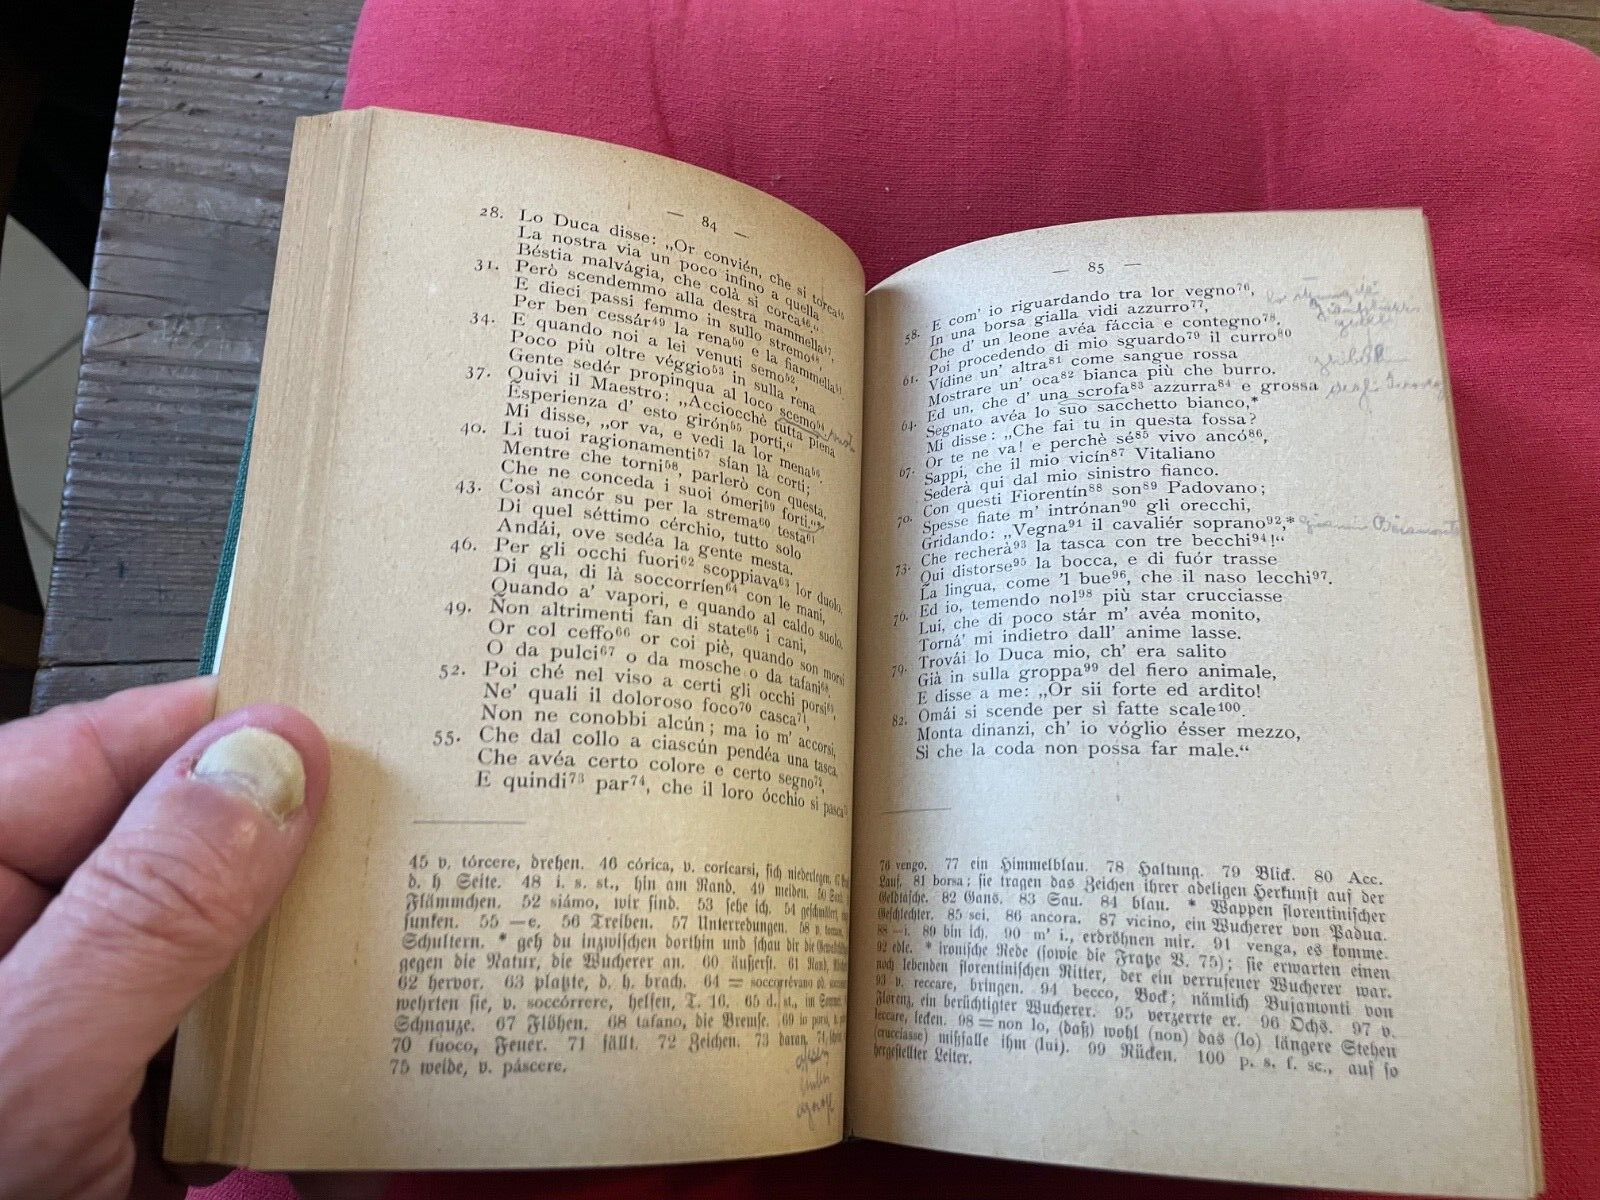 — 84 —
28. Lo Duca disse: „Or convién, che si torca⁴⁵
La nostra via un poco infino a quella
Béstia malvágia, che colà si corca⁴⁶.“
31. Però scendemmo alla destra mammella⁴⁷,
E dieci passi femmo in sullo stremo⁴⁸,
Per ben cessár⁴⁹ la rena⁵⁰ e la fiammella⁵¹.
34. E quando noi a lei venuti semo⁵²,
Poco più oltre véggio⁵³ in sulla rena
Gente sedér propinqua al loco scemo⁵⁴
37. Quivi il Maestro: „Acciocchè tutta piena
Esperienza d' esto girón⁵⁵ porti,“
Mi disse, „or va, e vedi la lor mena⁵⁶.
40. Li tuoi ragionamenti⁵⁷ sían là corti;
Mentre che torni⁵⁸, parlerò con questa,
Che ne conceda i suoi ómeri⁵⁹ forti.“*
43. Così ancór su per la strema⁶⁰ testa⁶¹
Di quel séttimo cérchio, tutto solo
Andái, ove sedéa la gente mesta.
46. Per gli occhi fuori⁶² scoppiava⁶³ lor duolo.
Di qua, di là soccorríen⁶⁴ con le mani,
Quando a' vapori, e quando al caldo suolo.
49. Non altrimenti fan di state⁶⁵ i cani,
Or col ceffo⁶⁶ or coi piè, quando son morsi
O da pulci⁶⁷ o da mosche o da tafani⁶⁸.
52. Poi ché nel viso a certi gli occhi porsi⁶⁹,
Ne' quali il doloroso foco⁷⁰ casca⁷¹,
Non ne conobbi alcún; ma io m' accorsi,
55. Che dal collo a ciascún pendéa una tasca,
Che avéa certo colore e certo segno⁷²,
E quindi⁷³ par⁷⁴, che il loro ócchio si pasca⁷⁵
45 v. tórcere, drehen. 46 córica, v. coricarsi, sich niederlegen. 47
d. h Seite. 48 i. s. st., hin am Rand. 49 meiden. 50 Sand.
Flämmchen. 52 siámo, wir sind. 53 sehe ich. 54 geschmälert,
sunken. 55 —e. 56 Treiben. 57 Unterredungen. 58 v.
Schultern. * geh du inzwischen dorthin und schau dir die
gegen die Natur, die Wucherer an. 60 äußerst. 61 Rand,
62 hervor. 63 platzte, d. h. brach. 64 = soccorrévano od.
wehrten sie, v. soccórrere, helfen, T. 16. 65 d. st., im Sommer.
Schnauze. 67 Flöhen. 68 tafano, die Bremse. 69 io porsi, v.
70 fuoco, Feuer. 71 fällt. 72 Zeichen. 73 daran. 74
75 weide, v. páscere.
— 85 —
E com' io riguardando tra lor vegno⁷⁶,
58. In una borsa gialla vidi azzurro⁷⁷,
Che d' un leone avéa fáccia e contegno⁷⁸.
Poi procedendo di mio sguardo⁷⁹ il curro⁸⁰
61. Vídine un' altra⁸¹ come sangue rossa
Mostrare un' oca⁸² bianca più che burro.
Ed un, che d' una scrofa⁸³ azzurra⁸⁴ e grossa
64. Segnato avéa lo suo sacchetto bianco,*
Mi disse: „Che fai tu in questa fossa?
Or te ne va! e perchè sé⁸⁵ vivo ancó⁸⁶,
67. Sappi, che il mio vicín⁸⁷ Vitaliano
Sederà qui dal mio sinistro fianco.
Con questi Fiorentín⁸⁸ son⁸⁹ Padovano;
70. Spesse fiate m' intrónan⁹⁰ gli orecchi,
Gridando: „Vegna⁹¹ il cavaliér soprano⁹²,*
Che recherà⁹³ la tasca con tre becchi⁹⁴!“
73. Qui distorse⁹⁵ la bocca, e di fuór trasse
La lingua, come 'l bue⁹⁶, che il naso lecchi⁹⁷.
Ed io, temendo nol⁹⁸ più star crucciasse
76. Lui, che di poco stár m' avéa monito,
Torná' mi indietro dall' anime lasse.
Trovái lo Duca mio, ch' era salito
79. Già in sulla groppa⁹⁹ del fiero animale,
E disse a me: „Or sii forte ed ardito!
Omái si scende per sì fatte scale¹⁰⁰.
82. Monta dinanzi, ch' io vóglio ésser mezzo,
Sì che la coda non possa far male.“
76 vengo. 77 ein Himmelblau. 78 Haltung. 79 Blick. 80 Acc.
Lauf. 81 borsa; sie tragen das Zeichen ihrer adeligen Herkunft auf der
Geldtasche. 82 Gans. 83 Sau. 84 blau. * Wappen florentinischer
Geschlechter. 85 sei. 86 ancora. 87 vicino, ein Wucherer von Padua.
88 —i. 89 bin ich. 90 m' i., erdröhnen mir. 91 venga, es komme.
92 edle. * ironische Rede (sowie die Fratze V. 75); sie erwarten einen
noch lebenden florentinischen Ritter, der ein verrufener Wucherer war.
93 v. reccare, bringen. 94 becco, Bock; nämlich Bujamonti von
Florenz, ein berüchtigter Wucherer. 95 verzerrte er. 96 Ochs. 97 v.
leccare, lecken. 98 = non lo, (daß) wohl (non) das (lo) längere Stehen
(crucciasse) mißfalle ihm (lui). 99 Rücken. 100 p. s. f. sc., auf so
hergestellter Leiter.